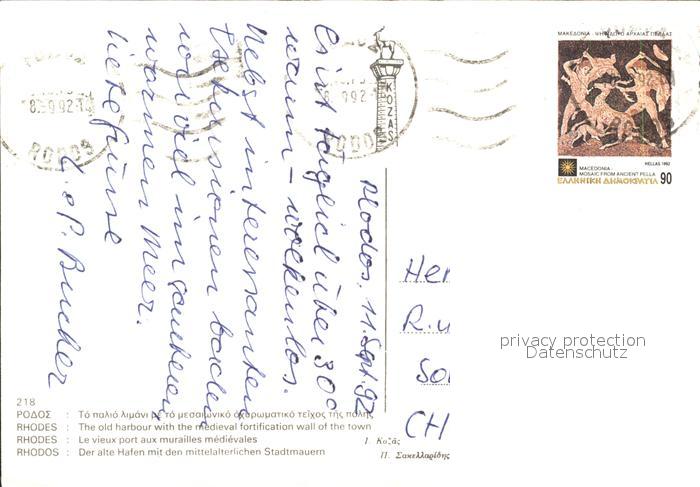 ΜΑΚΕΔΟΝΙΑ - ΨΗΦΙΔΩΤΟ ΑΡΧΑΙΑΣ ΠΕΛΛΑΣ
HELLAS 1992
MACEDONIA -
MOSAIC FROM ANCIENT PELLA
ΕΛΛΗΝΙΚΗ ΔΗΜΟΚΡΑΤΙΑ 90
RODOS
ΚΟΖΑΣ
Rhodos, 11. Sept. 92
Es ist täglich über 30°
warm - wolkenlos.
Nebst interessanten
Exkursionen baden
wir viel im sauberen
warmen Meer.
Liebe Grüsse
U. + P. Bucher
R. u
CH
privacy protection
Datenschutz
218
ΡΟΔΟΣ : Τό παλιό λιμάνι μέ τό μεσαιωνικό ὀχυρωματικό τεῖχος τῆς πόλης
RHODES : The old harbour with the medieval fortification wall of the town
RHODES : Le vieux port aux murailles médiévales
RHODOS : Der alte Hafen mit den mittelalterlichen Stadtmauern
Ι. Κοζᾶς
Π. Σακελλαρίδης